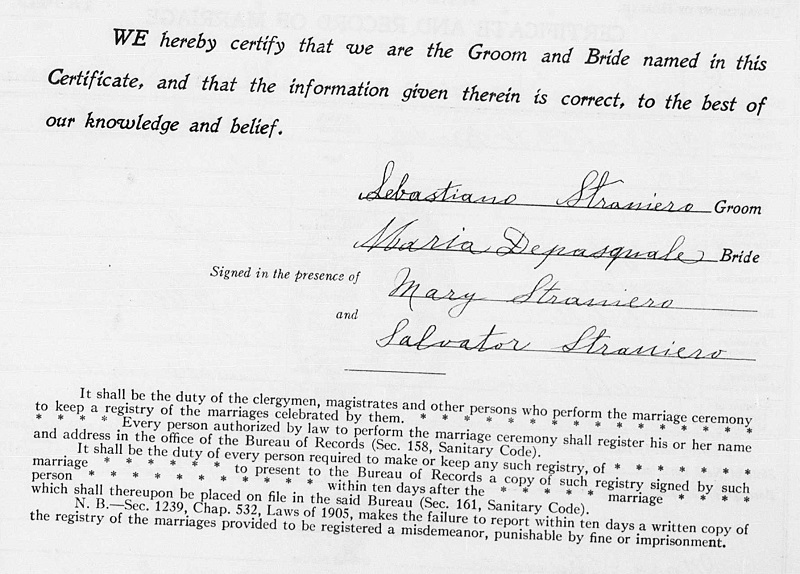 WE hereby certify that we are the Groom and Bride named in this
Certificate, and that the information given therein is correct, to the best of
our knowledge and belief.
Sebastiano Straniero Groom
Maria Depasquale Bride
Signed in the presence of Mary Straniero
and Salvator Straniero
It shall be the duty of the clergymen, magistrates and other persons who perform the marriage ceremony
to keep a registry of the marriages celebrated by them. * * * * * * * * * * * *
* * * * Every person authorized by law to perform the marriage ceremony shall register his or her name
and address in the office of the Bureau of Records (Sec. 158, Sanitary Code).
It shall be the duty of every person required to make or keep any such registry, of * * * * * * *
marriage * * * * * * to present to the Bureau of Records a copy of such registry signed by such
person * * * * * * * * * * * * within ten days after the * * * * * marriage * * * *
which shall thereupon be placed on file in the said Bureau (Sec. 161, Sanitary Code).
N. B.—Sec. 1239, Chap. 532, Laws of 1905, makes the failure to report within ten days a written copy of
the registry of the marriages provided to be registered a misdemeanor, punishable by fine or imprisonment.